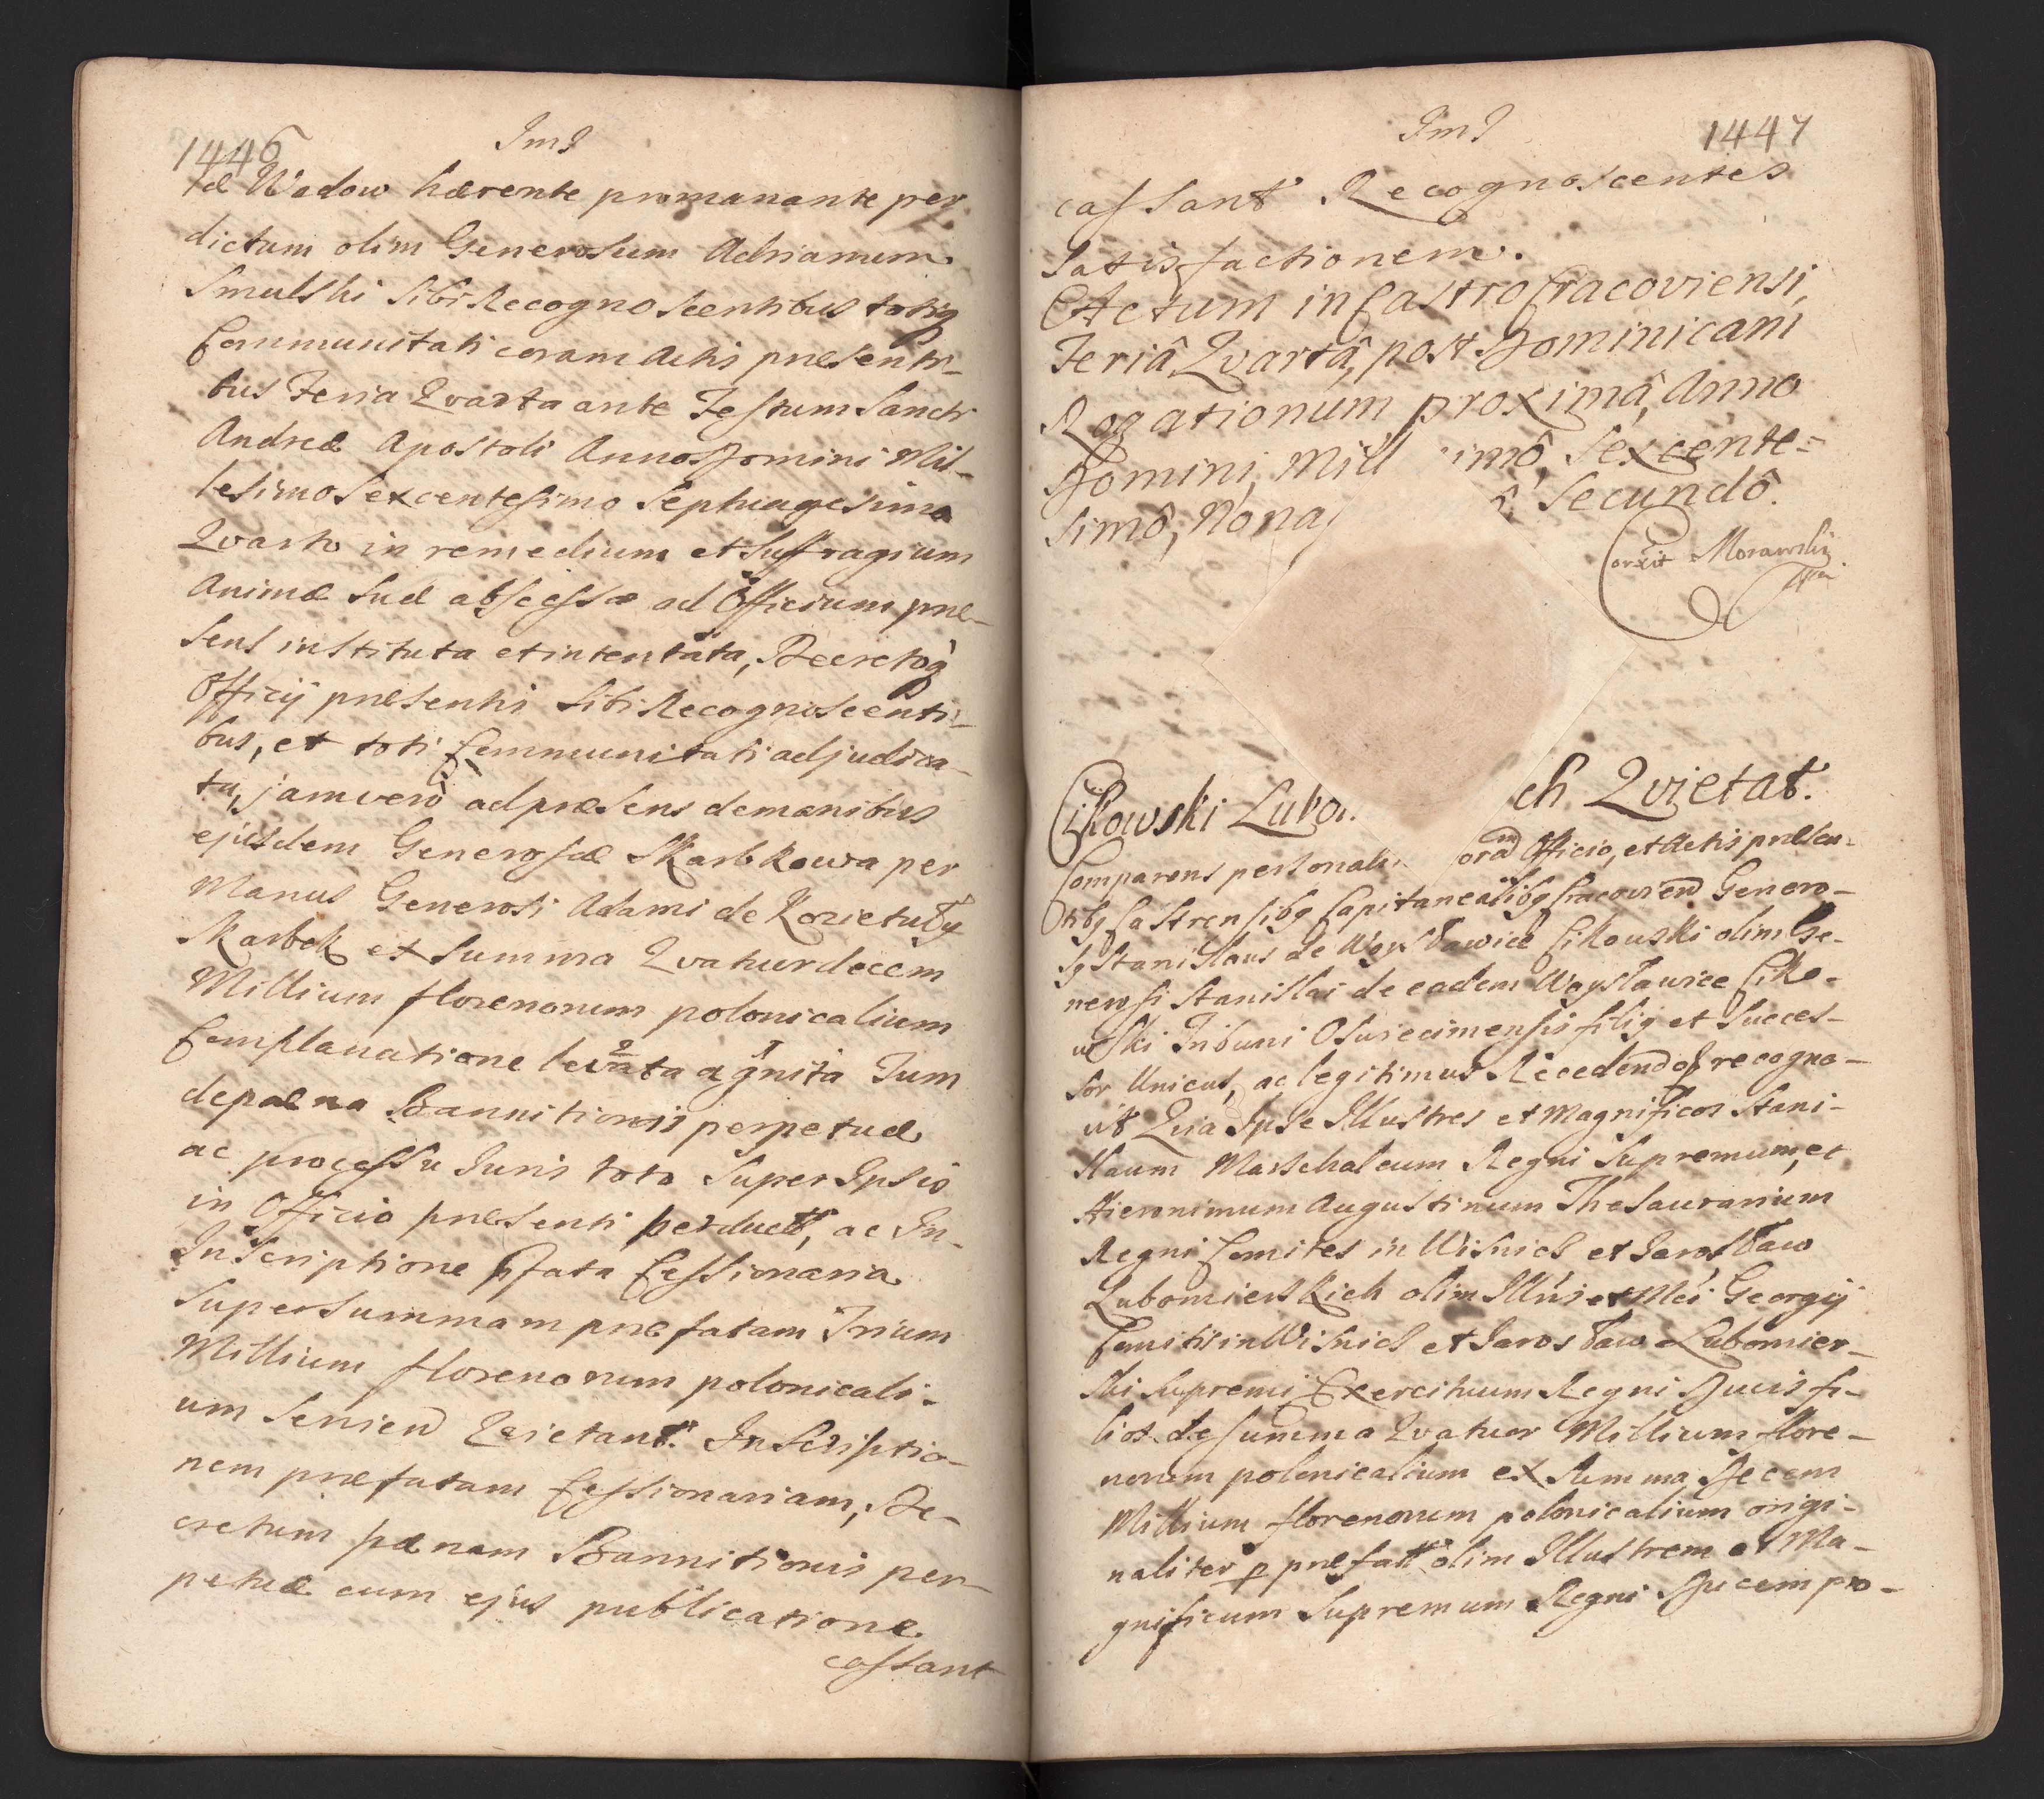 1446
ImJ
de Wadow hærente promanante per
dictum olim Generosum Adrianum
Smulski sibi Recognoscentibus totiq
Communitati coram Actis præsenti-
bus Feria Qvarta ante Festum Sancti
Andreæ Apostoli Anno Domini Mil-
lesimo Sexcentesimo Septuagesimo
Qvarto in remedium et Suffragium
Animæ suæ abscessæ ad Officium præ-
sens instituta et intentata, Decretoq
Officij præsentis sibi Recognoscenti-
bus, et toti Communitati adjudica-
ta, jam vero ad præsens de manibus
ejusdem Generosæ Skarbkowa per
Manus Generosi Adami de
Skarbek et Summa Qvatuordecem
Millium florenorum polonicalium
Complanatione levata agnita Tum
de pæna Bannitionis perpetuæ
ac processu Juris toto super Ipsis
in Officio præsenti perduct, ac In-
Inscriptione pfata Cessionaria
super summam præfatam Trium
Millium florenorum polonicali-
um Servien Qvietant. Inscriptio-
nem præfatam Cessionariam, De-
cretum pænam Bannitionis per-
petuæ cum ejus publicatione
cassant
ImJ
1447
cassant Recognoscentes
Satisfactionem.
Actum in Castro Cracoviensi,
Feriâ Qvartâ, post Dominicam
Rogationum proximâ, Anno
Domini, Mill imô, Sexcente-
simô, Nona ô, Secundô.
Corxit Morawski
Cikowski Lubo ch Qvietat.
Comparens personali oram Officio, et Actis præsen-
tibq Castrensibq Capitanealibq Cracovien Genero-
sq Stanislaus de Woysławice Cikowski olim Ge-
nerosi Stanislai de eadem Woysławice Ciko-
wski Tribuni Oswiecimensis filiq et Succes-
sor Unicus, ac legitimus Recedendo recogno-
vit Qvia Ipse Illustres et Magnificos Stani-
slaum Marschalcum Regni Supremum, et
Hieronimum Augustinum Thesaurarium
Regni Comites in Wisnicz et Jarosław
Lubomierskich olim Illris et Mci Georgij
Comitis in Wisnicz et Jarosław Lubomier-
ski Supremi Exercituum Regni Ducis fi-
lios de summa Qvatuor Millium flore-
norum polonicalium ex summa Decem
Millium florenorum polonicalium origi-
naliter p præfat olim Illustrem et Ma-
gnificum Supremum Regni Ducem pro-